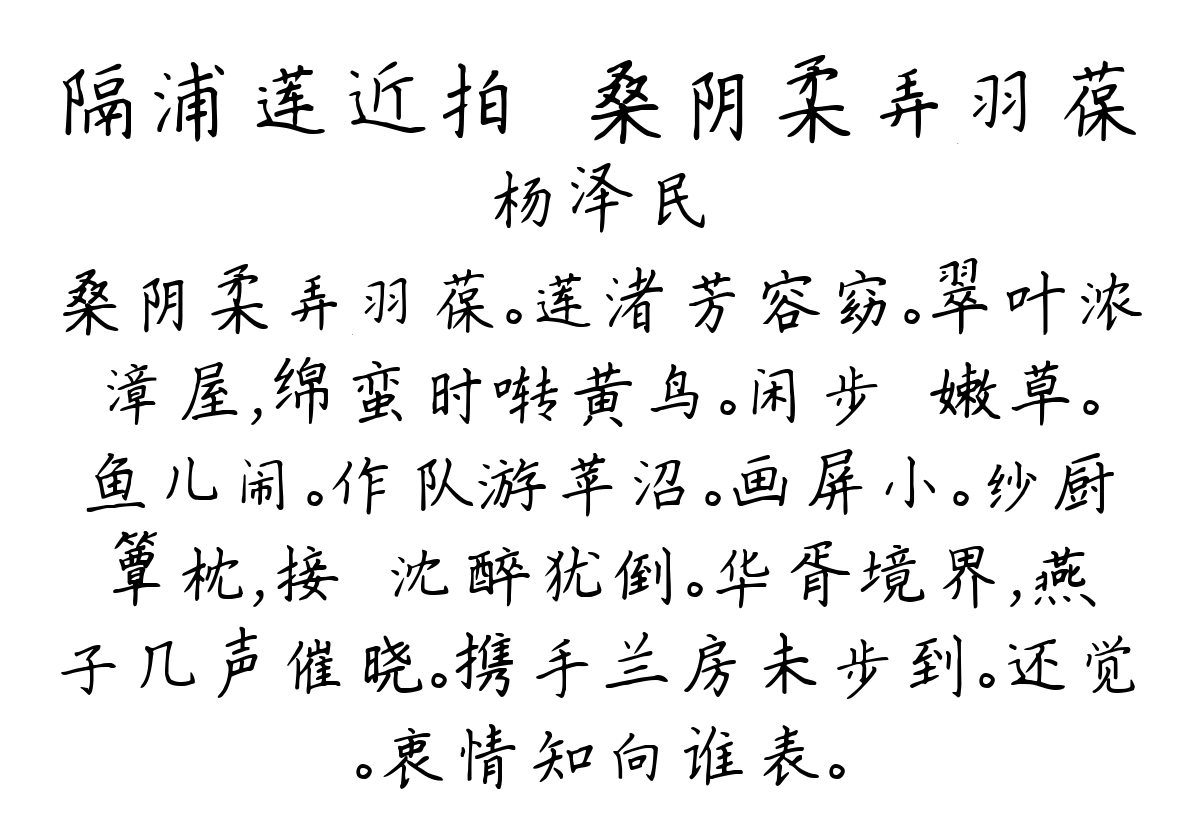 隔浦莲近拍 桑阴柔弄羽葆
杨泽民
桑阴柔弄羽葆。莲渚芳容窈。翠叶浓
漳屋,绵蛮时啭黄鸟。闲步 嫩草。
鱼儿闹。作队游苹沼。画屏小。纱厨
簟枕,接 沈醉犹倒。华胥境界,燕
子几声催晓。携手兰房未步到。还觉
。衷情知向谁表。